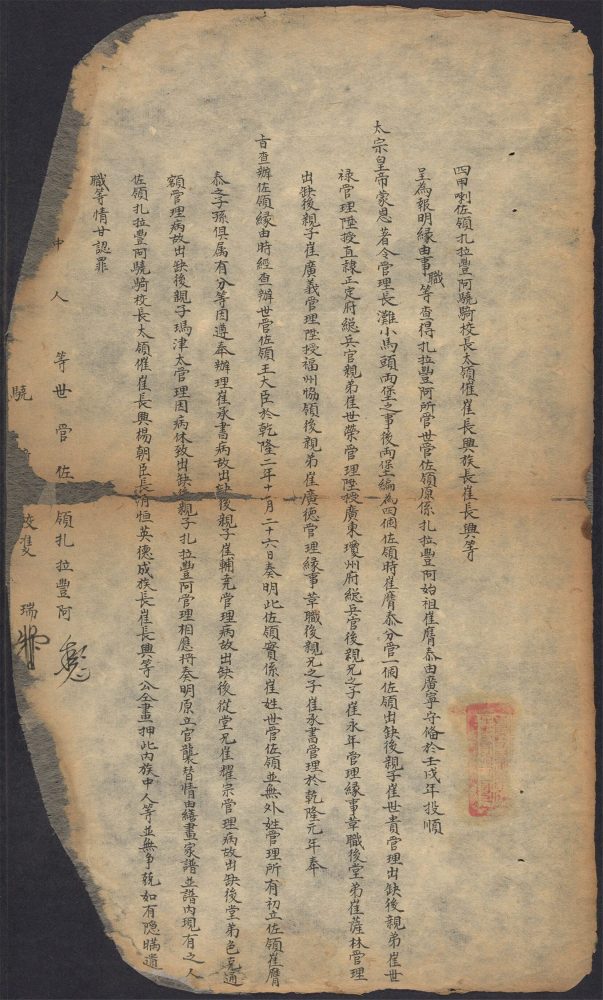 四甲喇佐領扎拉豐阿驍騎校長太領催崔長興族長崔長興等
呈為報明緣由事職等查得扎拉豐阿所管世管佐領原係扎拉豐阿始祖崔膺泰由廣寧守俻於壬戌年投順
太宗皇帝蒙恩著令管理長灘小馬頭両堡之事後両堡編為四個佐領時崔膺泰分管一個佐領出缺後親子崔世貴管理出缺後親弟崔世
祿管理陞授直隷正定府総兵官親弟崔世榮管理陞授廣東瓊州府総兵官後親兄之子崔永年管理緣事革職後堂弟崔薩林管理
出缺後親子崔廣義管理陞授福州協領後親弟崔廣德管理緣事革職後親兄之子崔承書管理於乾隆元年奉
旨查辦佐領緣由時經查辦世管佐領王大臣於乾隆二年十一月二十六日奏明此佐領實係崔姓世管佐領並無外姓管理所有初立佐領崔膺
泰之子孫俱属有分等因遵奉辦理崔承書病故出缺後親子崔輔堯管理病故出缺後從堂兄崔耀宗管理病故出缺後堂弟色克通
額管理病故出缺後親子瑪津太管理因病休致出缺後親子扎拉豐阿管理相應将奏明原立官襲替情由繕畫家譜並譜内現有之人
佐領扎拉豐阿驍騎校長太領催崔長興楊朝臣長清恒英德成族長崔長興等公仝畫押此内族中人等並無争競如有隐瞞遺
職等情甘認罪
中人等世管佐領扎拉豐阿
驍 校雙瑞